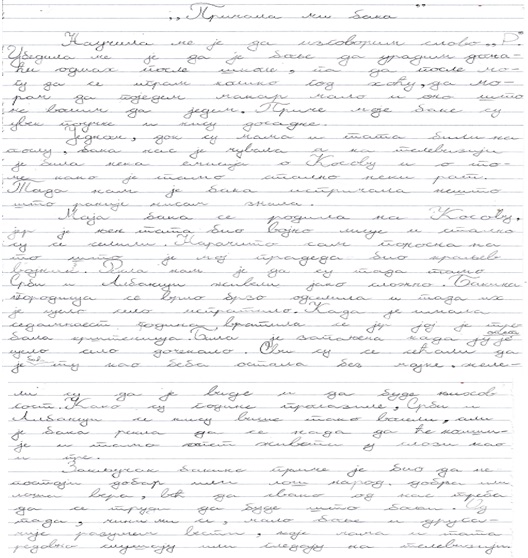 „Причала ми бака"
Научила ме је да изговорим слово „Р"
Убедила ме је да је боље да урадим дома-
ћи одмах после школе, па да после мо-
гу да се играм колико год хоћу, да мо-
рам да поједем макар мало и оно што
не волим да једем. Приче моје баке су
увек поучне и нису досадне.
Једном, док су мама и тата били на
послу, бака нас је чувала а на телевизији
је била нека емисија о Косову и о то-
ме како је тамо стално неки рат.
Тада нам је бака испричала нешто
што раније нисам знала.
Моја бака се родила на Косову,
јер је њен тата био војно лице и стално
су се селили. Нарочито сам поносна на
то што је мој прадеда био краљев
војник. Рекла нам је да су тада тамо
Срби и Албанци живели јако сложно. Бакина
породица се врло брзо одселила и тада их
је цело село испратило. Када је имала
седамнаест година вратила се јер јој је тре-
бала крштеница. Била је затечена када ју је
цело село дочекало. Сви су се сећали да
је ту као беба остала без мајке, желе-
ли су да је виде и да буде њихов
гост. Како су године пролазиле, Срби и
Албанци се нису више тако волели, али
је бака рекла да се нада да ће комши-
је и тамо опет живети у слози као
и пре.
Закључак бакине приче је био да не
постоји добар или лош народ, добра или
лоша вера, већ да свако од нас треба
да се труди да буде што бољи. Од
тада, чини ми се, мало боље и друга-
чије разумем вести, које мама и тата
редовно слушају или гледају на телевизији.